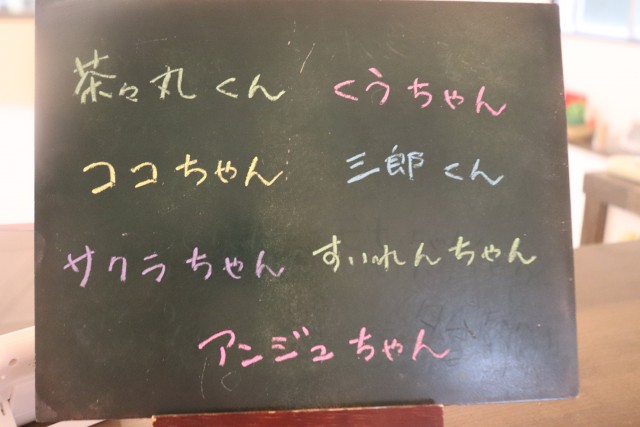 茶々丸くん くうちゃん
ココちゃん 三郎くん
サクラちゃん すいれんちゃん
アンジュちゃん